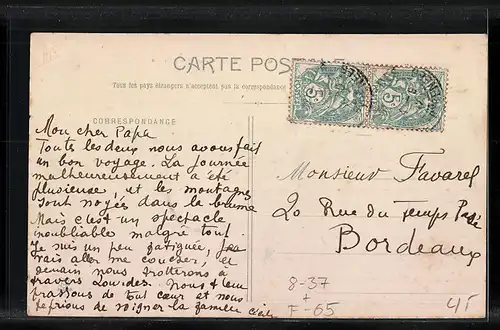 CARTE POSTALE
Tous les pays étrangers n'acceptent pas la correspondance
CORRESPONDANCE
Mon cher Papa
Toute les deux nous avons fait
un bon voyage. La journée
malheureusement a été
pluvieuse, et les montagnes
sont noyées dans la brume
Mais c'est un spectacle
inoubliable malgré tout.
Je suis un peu fatiguée,
vais aller me coucher, et
demain nous trotterons à
travers Lourdes. Nous t'em
brassons de tout cœur et nous
te prions de soigner la famille
Monsieur Favarel
20 Rue du Temps Passé
Bordeaux
5
5
8-37
+
F-65
45